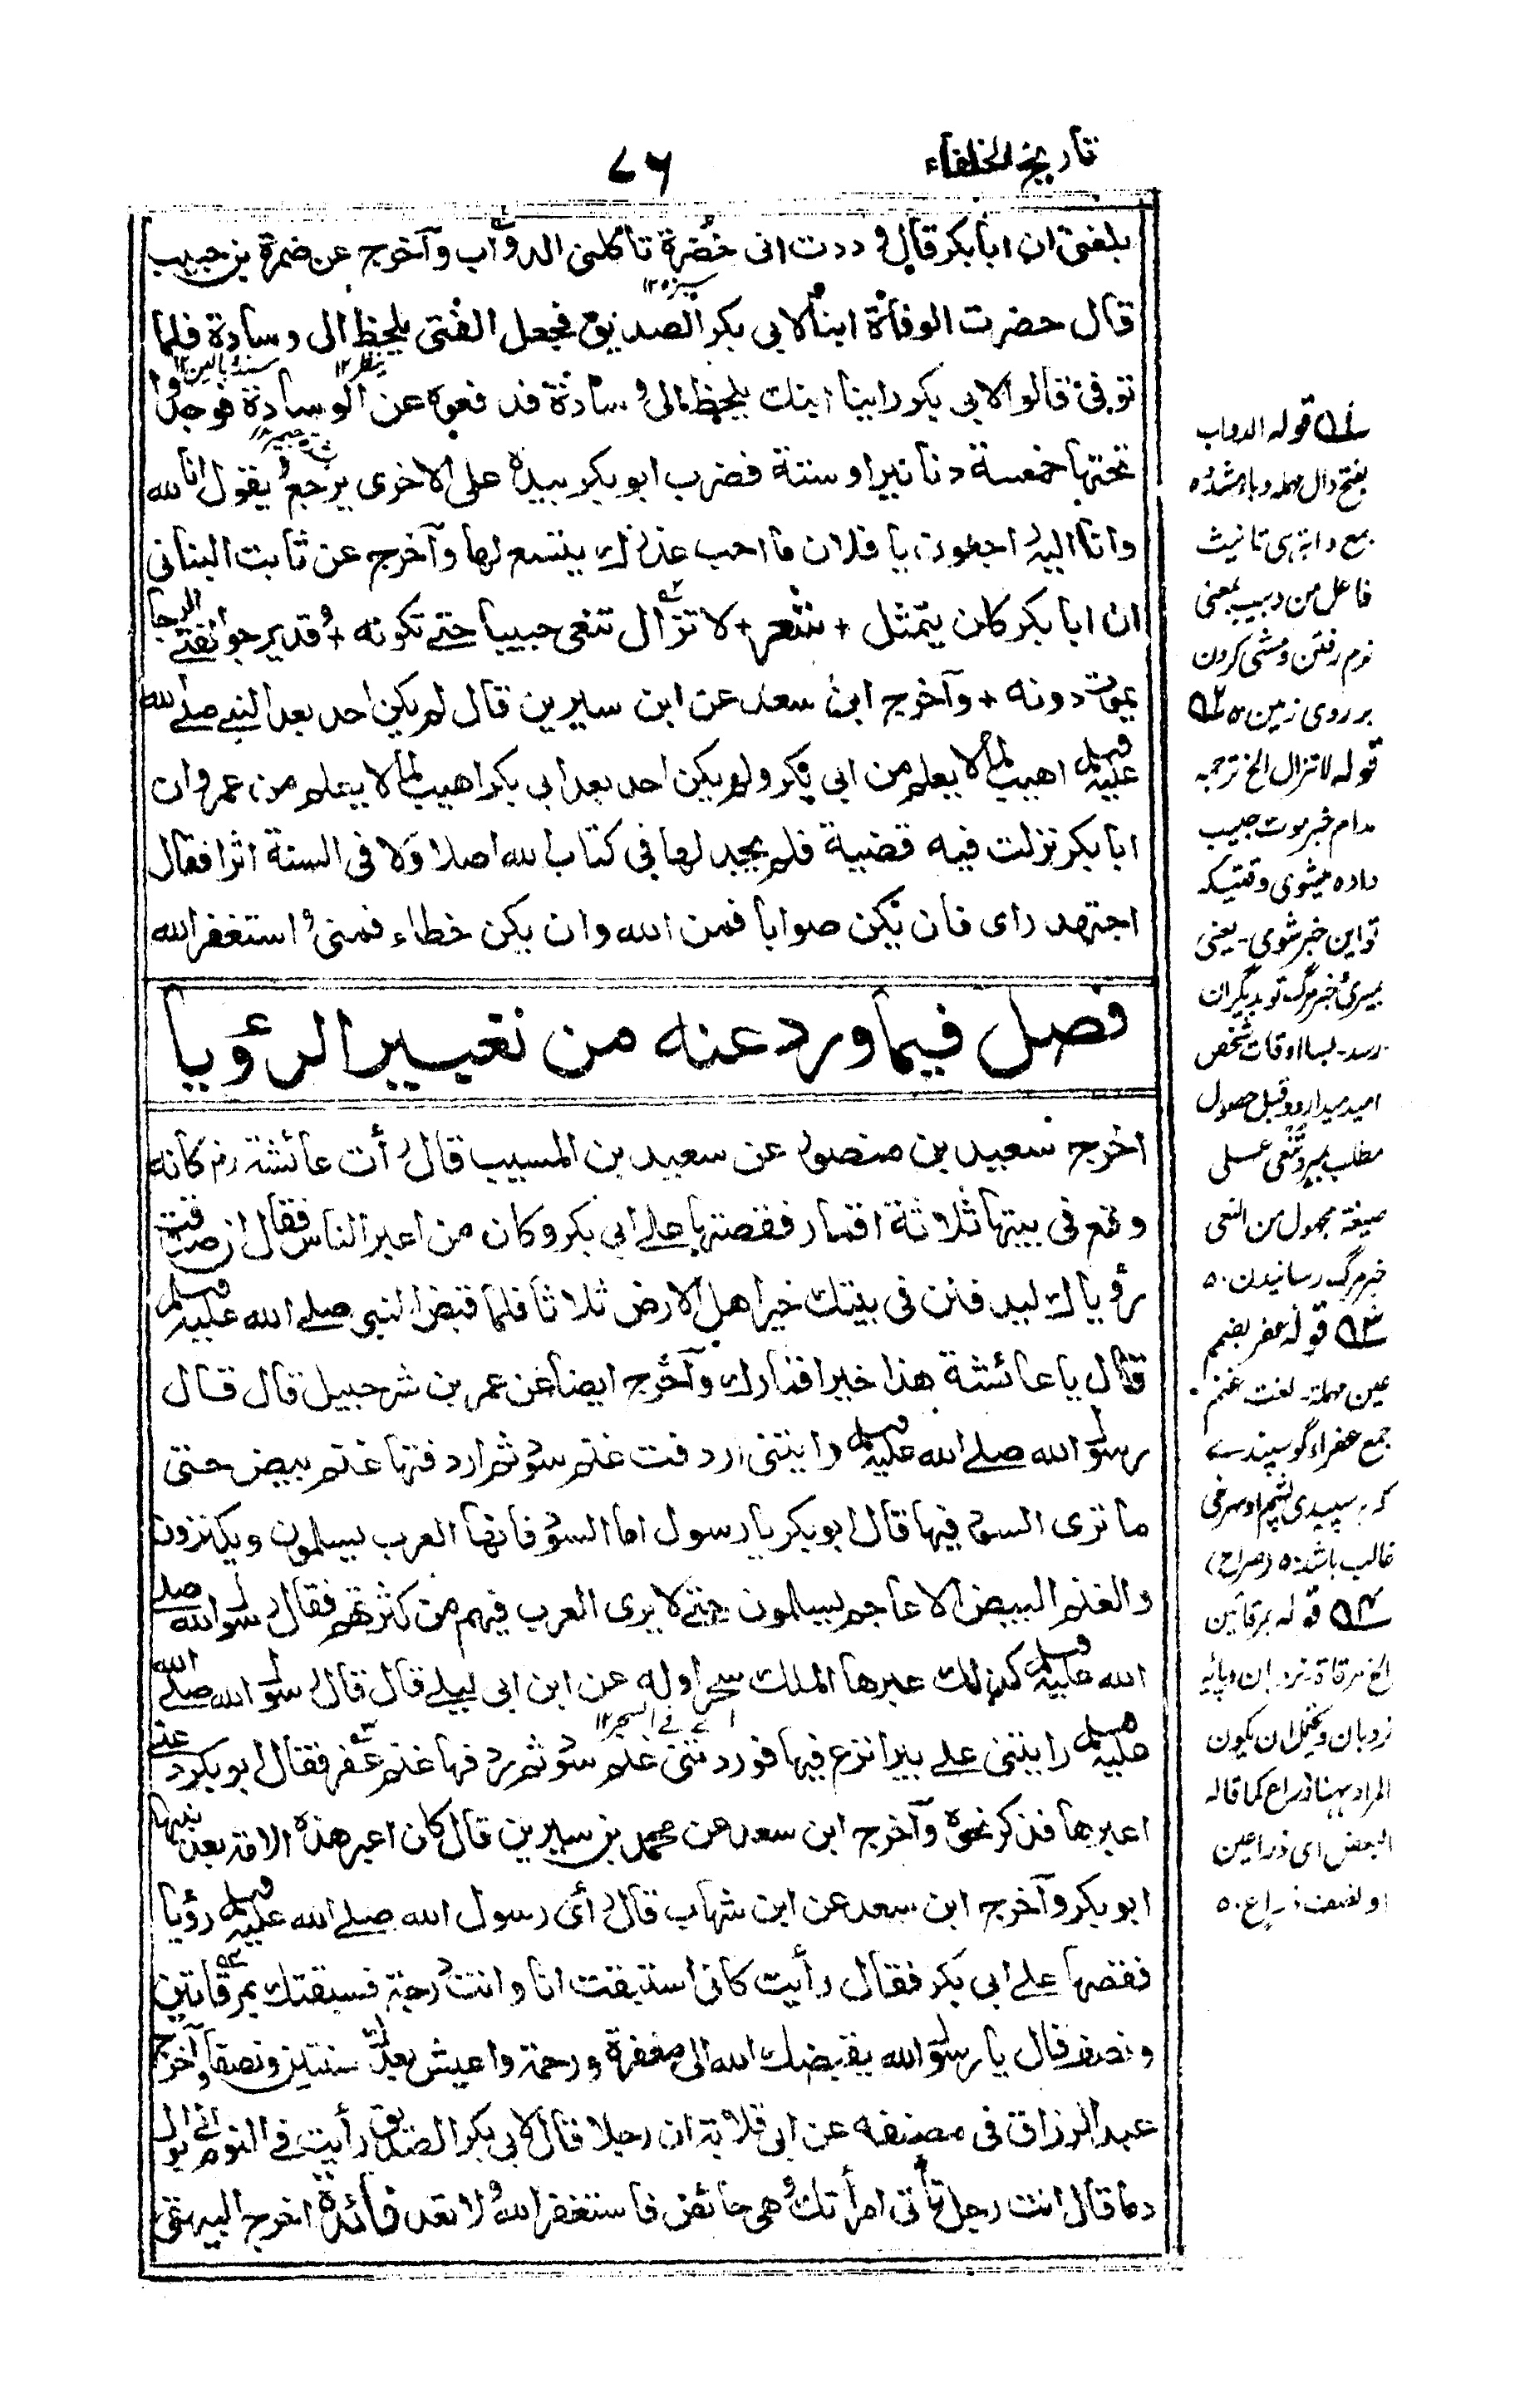 تاريخ الخلفاء
٧٦
بلغني ان ابا بكر قال وددت اني خضرة تاكلني الدواب وآخرج عن ضمرة بن حبيب
قال حضرت الوفاة ابنا لابي بكر الصديق فجعل الفتى يلحظ الى وسادة فلما
توفي قالوا لابي بكر راينا ابنك يلحظ الى وسادة فدفعوه عن الوسادة فوجدوا
تحتها خمسة دنانير او ستة فضرب ابو بكر بيده على الاخرى يرجع يقول انا لله
وانا اليه راجعون يا فلان ما احسب جلدك يتسع لها وآخرج عن ثابت البناني
ان ابا بكر كان يتمثل + شعر + لا تزال تنعى حبيبا حتى تكونه + وقد يرجو الفتى الرجا
يموت دونه + وآخرج ابن سعد عن ابن سيرين قال لم يكن احد بعد النبي صلى الله
عليه وسلم اهيب لما لا يعلم من ابي بكر ولم يكن احد بعد ابي بكر اهيب لما لا يعلم من عمر وان
ابا بكر نزلت فيه قضية فلم يجد لها في كتاب الله اصلا ولا في السنة اثرا فقال
اجتهد راى فان يكن صوابا فمن الله وان يكن خطاء فمنى واستغفر الله
فصل فيما ورد عنه من تعبير الرؤيا
اخرج سعيد بن منصور عن سعيد بن المسيب قال رأت عائشة رض كانه
وقع في بيتها ثلاثة اقمار فقصتها على ابي بكر وكان من اعبر الناس فقال ان صدقت
رؤياك ليدفنن في بيتك خير اهل الارض ثلاثا فلما قبض النبي صلى الله عليه وسلم
قال يا عائشة هذا خير اقمارك وآخرج ايضا عن عمر بن شرحبيل قال قال
رسول الله صلى الله عليه وسلم رايتنى اردفت غنم سود ثم اردفتها غنم بيض حتى
ما ترى السود فيها قال ابو بكر يا رسول اما السود فانها العرب يسلمون ويكثرون
والغنم البيض الاعاجم يسلمون حتى لا يرى العرب فيهم من كثرتهم فقال رسول الله صلى
الله عليه وسلم كذلك عبرها الملك سحرا وله عن ابن ابي ليلى قال قال رسول الله صلى الله
عليه وسلم رايتنى على بير انزع فيها فوردتنى غنم سود ثم ردفها غنم عفر فقال ابو بكر دعنى
اعبرها فذكر نحوه وآخرج ابن سعد عن محمد بن سيرين قال كان اعبر هذه الامة بعد نبيها
ابو بكر وآخرج ابن سعد عن ابن شهاب قال رأى رسول الله صلى الله عليه وسلم رؤيا
فقصها على ابي بكر فقال رأيت كانى استبقت انا وانت درجة فسبقتك بمرقاتين
ونصف قال يا رسول الله يقبضك الله الى مغفرة ورحمة واعيش بعدك سنتين ونصفا وآخرج
عبد الرزاق في مصنفه عن ابي قلابة ان رجلا قال لابي بكر الصديق رأيت في النوم اني ابول
دما قال انت رجل تأتي امرأتك وهي حائض فاستغفر الله ولا تعد فائدة اخرج البيهقى
قوله الدواب
بفتح دال مهمله وباء مشدده
جمع دابة هى تانيث
فاعل من دبيب بمعنى
نرم رفتن ومشى كردن
بر روى زمين
قوله لا تزال الخ ترجمه
مدام خبر موت حبيب
داده ميشوى وقتيكه
تو اين خبر شوى - يعنى
بميرى خبر مرگ تو بديگران
رسد - بسا اوقات شخص
اميد ميدارد و قبل حصول
مطلب ميرد تنعى على
صيغه مجهول من النعى
خبر مرگ رسانيدن
قوله عفر بضم
عين مهملة - لغت غنم
جمع عفراء گوسپندے
كه بر سپيدى پشم او سرخى
غالب باشد (صراح)
قوله بمرقاتين
الخ مرقاة نردبان وپايه
نردبان ويحتمل ان يكون
المراد بهنا ذراع كما قاله
البعض اى ذراعين
او نصف ذراع